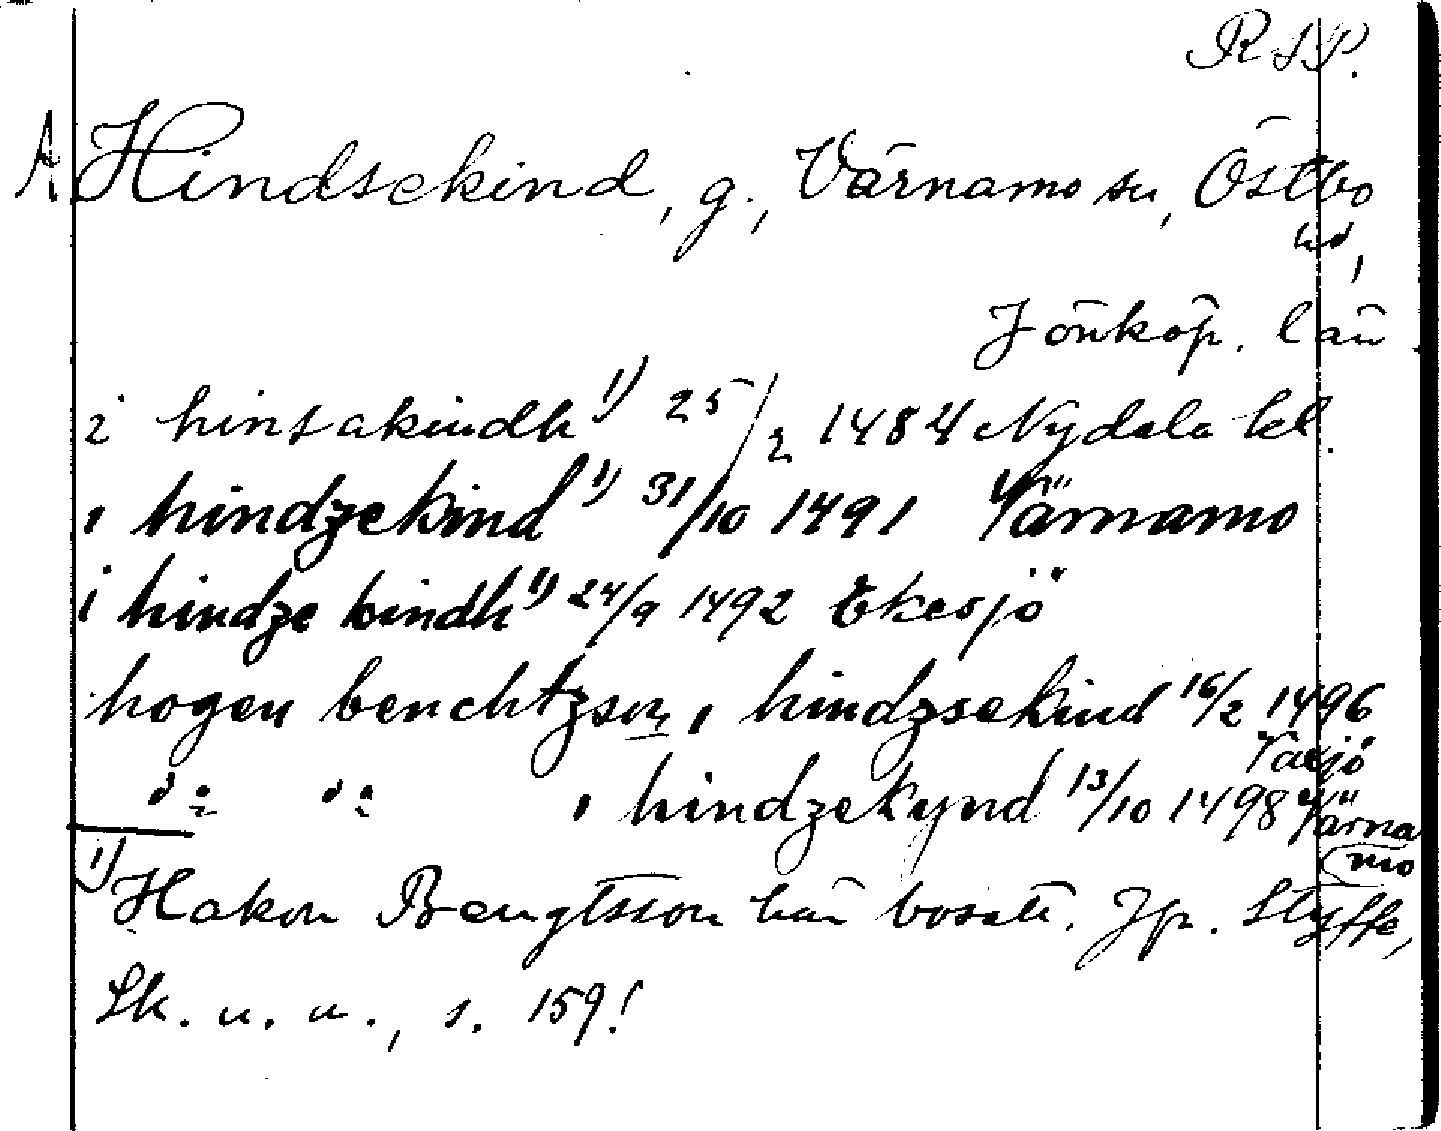 RSP.
A Hindsekind, g., Värnamo sn, Östbo
hd,
Jönköp. län
i hinsakindh 1) 25/2 1484 Nydala kl.
i hindzekind 1) 31/10 1491 Värnamo
i hindze kindh 1) 24/9 1492 Ekesjö
hogen benchtzson i hindzsekind 16/2 1496
Växjö
"- "- i hindzekynd 13/10 1498 Värna
mo
1) Hakon Bengtsson här bosatt. Jfr. Styffe,
Sk. u. u., s. 159!